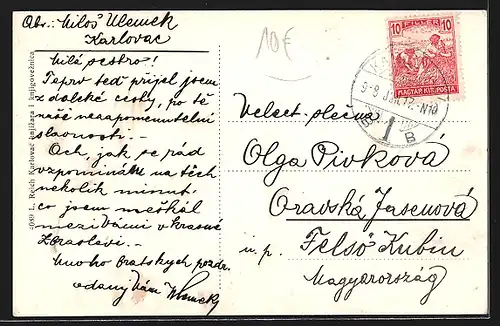 Abs.: Miloš Ulemek
Karlovac
Milá sestro!
Teprv teď přijel jsem
z daleké cesty, po té
naše nezapomenutelné
slavnosti.-
Och, jak se rád
vzpomínám na těch
několik minut
co jsem meškal
mezi Vámi v krasné
Mnoho bratskych pozdr.
odaný Vám
4089 L. Reich Karlovac knjižara i knjigovežnica
10€
10 FILLÉR 10
MAGYAR KIR. POSTA
B
Velect. slečna
Olga Pivková
Oravská Jasenová
u. p. Felső Kubin
Magyarország